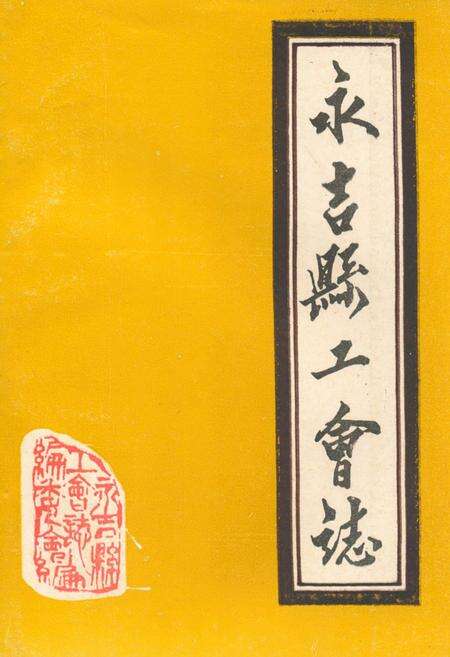 永吉縣工會誌
永吉縣
工會誌
編委會編